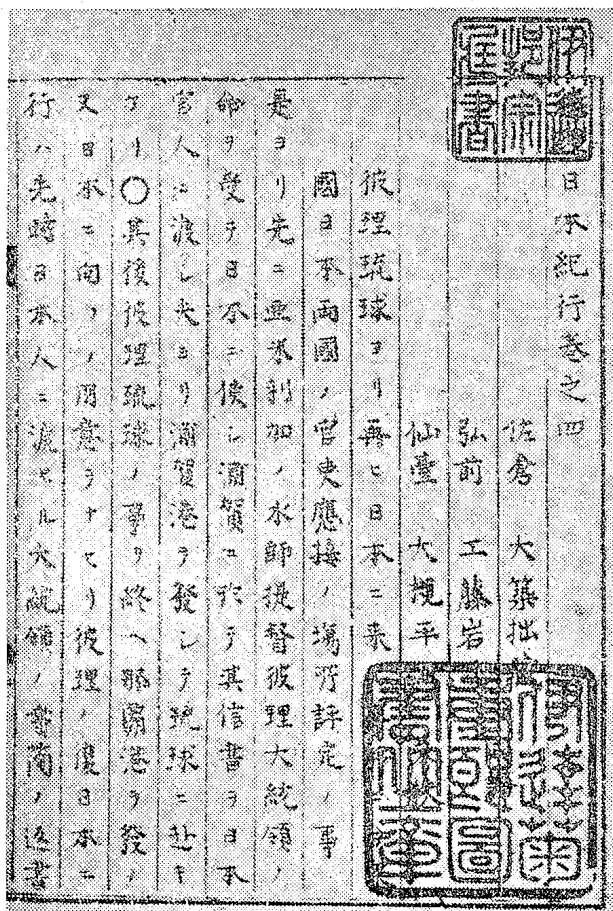 日本紀行巻之四
佐倉 大築拙
弘前 工藤岩
仙臺 大槻平
彼理琉球ヨリ再ヒ日本ニ来
國日本両國ノ官吏應接ノ場所評定ノ事
是ヨリ先ニ亜米利加ノ水師提督彼理大統領ノ
命ヲ受テ日本ニ使シ浦賀ニ於テ其信書ヲ日本
官人ニ渡シ夫ヨリ浦賀港ヲ發シテ琉球ニ赴キ
ケリ〇其後彼理琉球ノ事ヲ終ヘ那覇港ヲ發ノ
又日本ニ向フノ用意ヲナセリ彼理ノ復日本ニ
行ハ先時日本人ニ渡セル大統領ノ書簡ノ返書